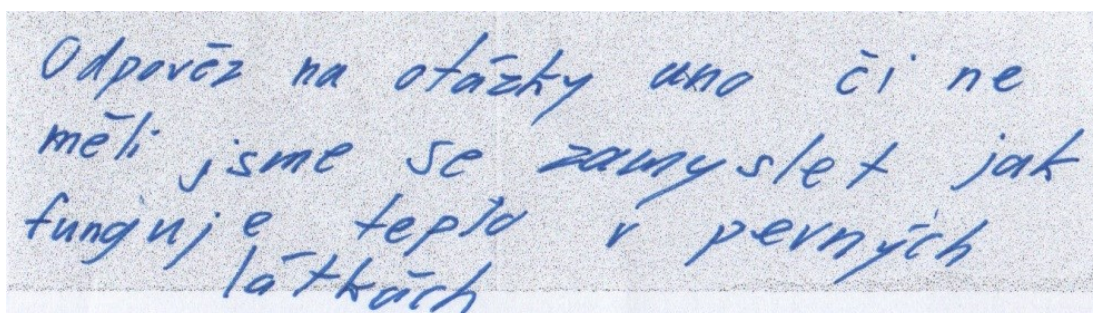 Odpověz na otázky ano či ne
měli jsme se zamyslet jak
funguje teplo v pevných
látkách